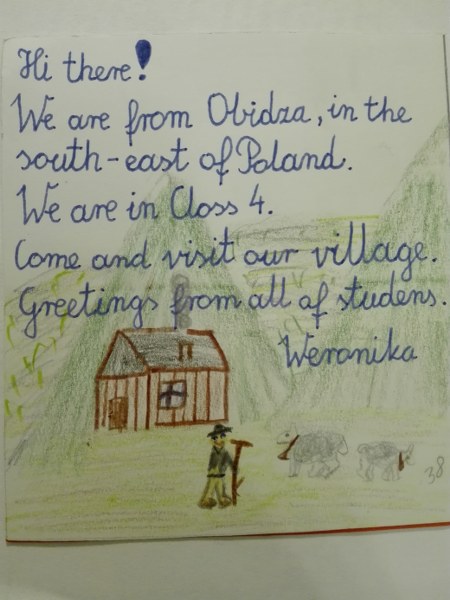 Hi there!
We are from Obidza, in the
south-east of Poland.
We are in Closs 4.
Come and visit our village.
Greetings from all of studens.
Weronika
38